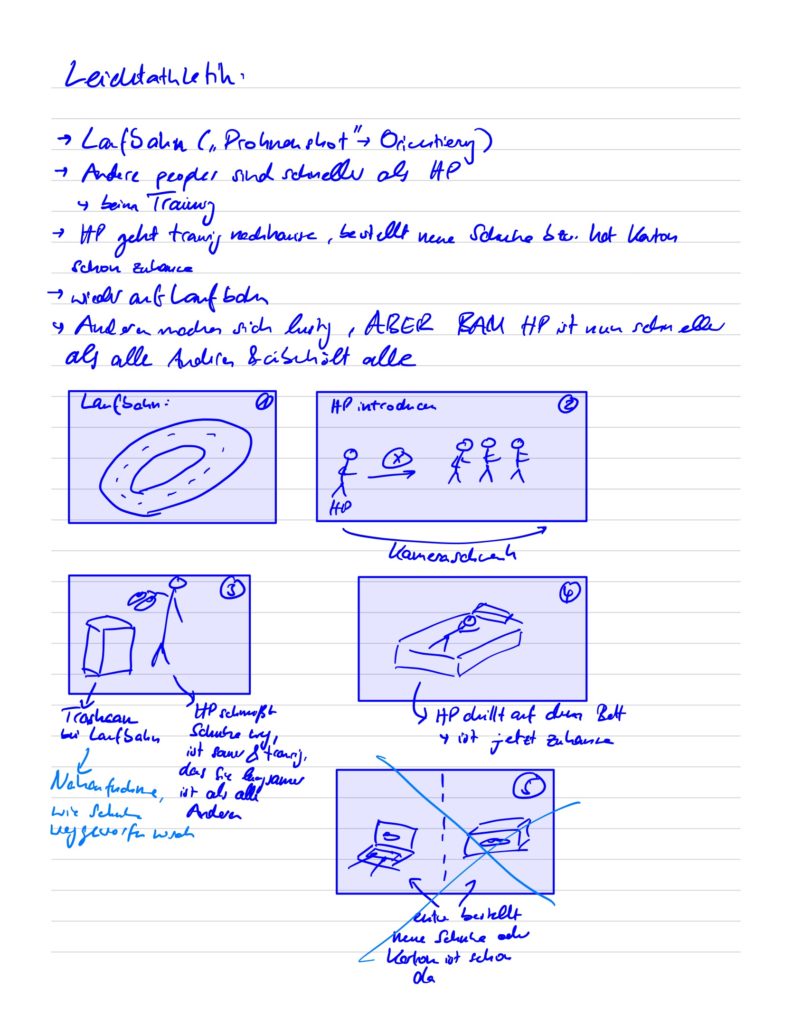 Leichtathletik:
→ Laufbahn („Drohnenshot" → Orientierung)
→ Andere peoples sind schneller als HP
↳ beim Training
→ HP geht traurig nachhause, bestellt neue Schuhe bzw. hat Karton
schon zuhause
→ wieder auf Laufbahn
↳ Anderen machen sich lustig, ABER BAM HP ist nun schneller
als alle Anderen & überholt alle
Laufbahn: 1
HP introducen 2
HP
Kameraschwenk
3
4
Trashcan
bei Laufbahn
Nahaufnahme,
wie Schuhe
weggeworfen werden
HP schmeißt
Schuhe weg,
ist sauer & traurig,
das sie langsamer
ist als alle
Anderen
↳ HP chillt auf dem Bett
↳ ist jetzt zuhause
5
bestellt
neue Schuhe oder
Karton ist schon
da